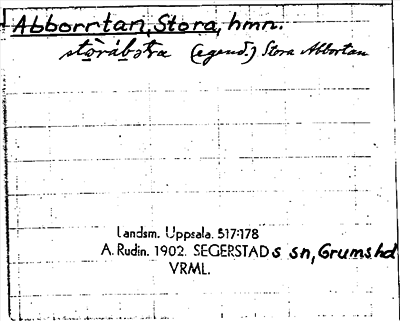 Abborrtan, Stora, hmn.
stòrábo̊tra (agend.) Stora Abbortan
Landsm. Uppsala. 517:178
A. Rudin. 1902. SEGERSTADs sn, Grums hd
VRML.